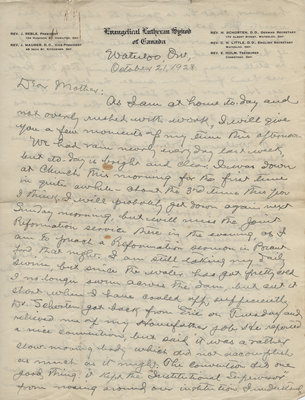 Evangelical Lutheran Synod
of Canada
REV. J. REBLE, PRESIDENT
REV. J. MAURER, D.D., VICE-PRESIDENT
REV. H. SCHORTEN, D.D., GERMAN SECRETARY
REV. C. H. LITTLE, D.D., ENGLISH SECRETARY
WATERLOO, ONT.
REV. E. HOLM, TREASURER
Waterloo, Ont,
October 21, 1928.
Dear Mother:
As I am at home to-day and
not overly rushed with work, I will give
you a few moments of my time this afternoon.
We had rain nearly every day last week,
but to-day is bright and clear. I was down
at Church this morning for the first time
in quite awhile - about the 3rd time this year
I think. I will probably get down again next
Sunday morning, but will miss the Joint
Reformation service here in the evening as I
am to preach a Reformation sermon in
for that night. I am still taking my daily
swim, but since the water has got pretty cold
I no longer swim across the dam, but cut it
short when I have cooled off sufficiently.
Dr. Schorten got back from Erie on Tuesday and
relieved me of my Housefather job. He reported
a nice convention, but said it was a rather
slow moving body which did not accomplish
as much as it might. The convention did one
good thing: it kept the Institutional Supervisor
from nosing around our institution. I indulged